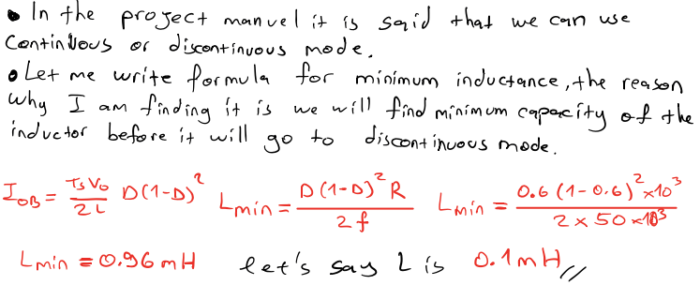 • In the project manuel it is said that we can use
Continuous or discontinuous mode.
• Let me write formula for minimum inductance, the reason
why I am finding it is we will find minimum capacity of the
inductor before it will go to discontinuous mode.
I_OB = TsVo/2L D(1-D)² Lmin = D(1-D)²R/2f Lmin = 0.6(1-0.6)²×10³/2×50×10³
Lmin = 0.96 mH let's say L is 0.1mH//